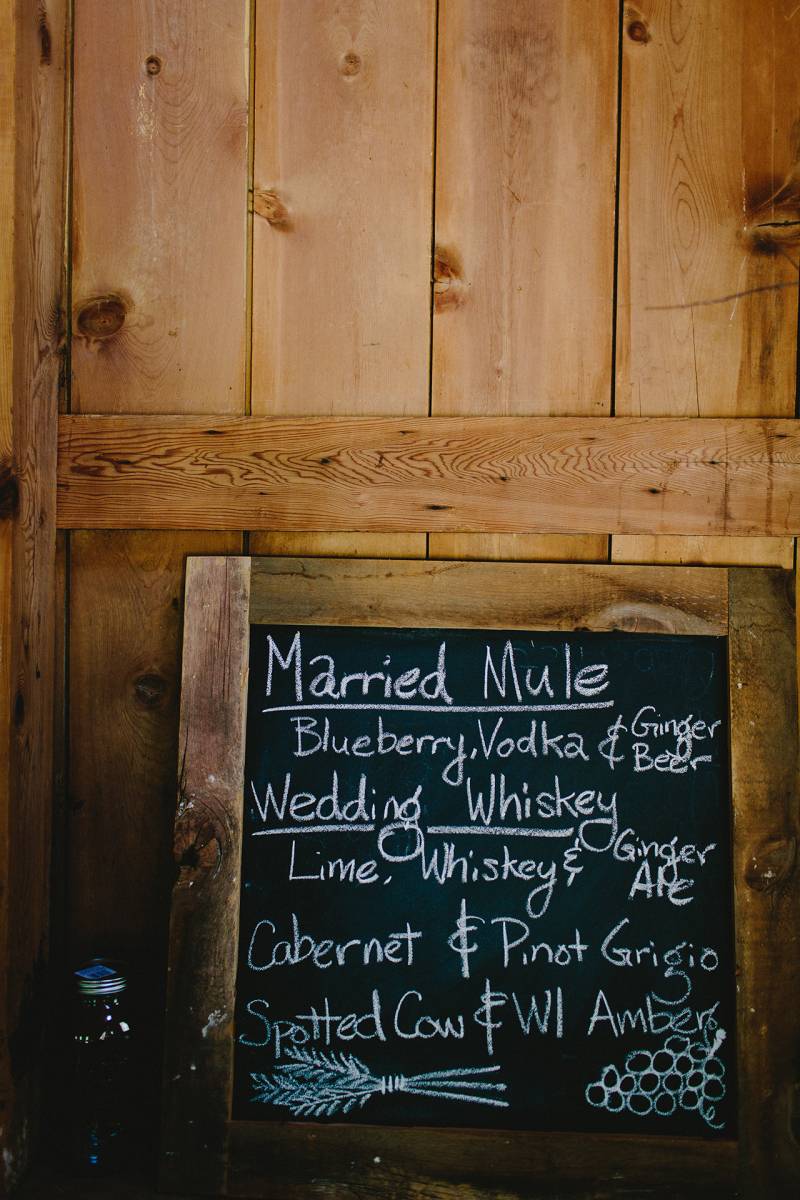 Married Mule
Blueberry, Vodka & Ginger Beer
Wedding Whiskey
Lime, Whiskey & Ginger Ale
Cabernet & Pinot Grigio
Spotted Cow & WI Amber